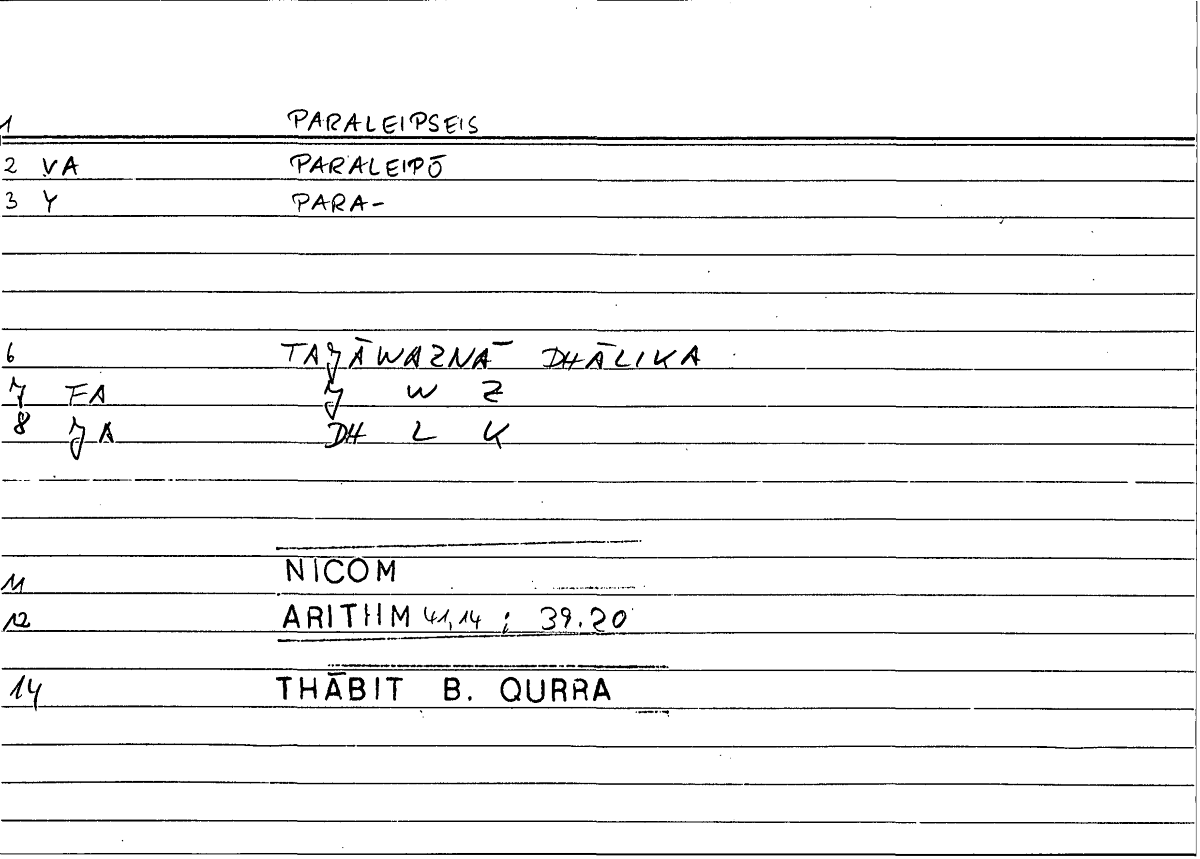 1 PARALEIPSEIS
2 VA PARALEIPŌ
3 Y PARA-
6 TAJĀWAZNĀ DHĀLIKA
7 FA J W Z
8 JA DH L K
11 NICOM
12 ARITHM 41,14 ; 39.20
14 THĀBIT B. QURRA